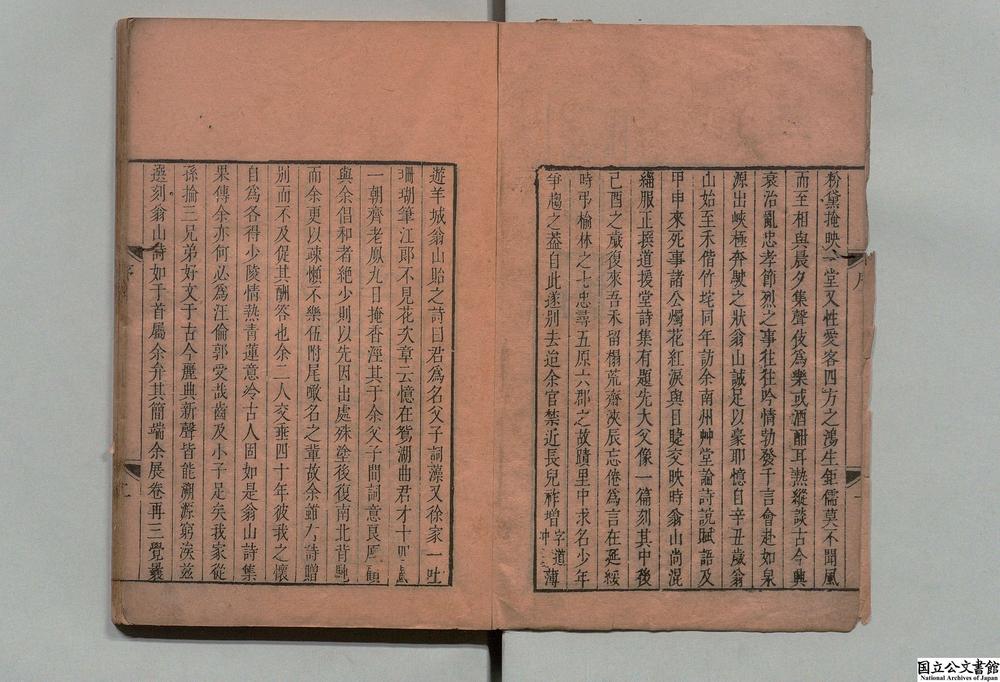 粉黛掩映一堂又性愛客四方之鴻生鉅儒莫不聞風
而至相與晨夕集聲伎爲樂或酒酣耳熱縱談古今興
衰治亂忠孝節烈之事往往吟情勃發千言會赴如泉
源出峽極奔駛之狀翁山誠足以豪耶憶自辛丑歲翁
山始至禾偕竹垞同年訪余南州艸堂論詩說賦語及
甲申來死事諸公燭花紅淚與目睫交映時翁山尚混
緇服正撰道援堂詩集有題先大父像一篇刻其中後
己酉之歲復來吾禾留榻荒齋浹辰忘倦爲言在延綏
時弔榆林之七忠尋五原六郡之故蹟里中求名少年
爭趨之蓋自此遂別去迨余官禁近長兒祚增字道冲薄
序
遊羊城翁山貽之詩曰君爲名父子詞藻又徐家一吐
珊瑚筆江郎不見花次章云憶在鴛湖曲君才十四歲
一朝齊老鳳九日掩香溼其于余父子間詞意良厚顧
與余倡和者絶少則以先因出處殊塗後復南北背馳
而余更以疎懶不樂伍附尾噉名之輩故余雖有詩贈
別而不及促其酬答也余二人交垂四十年彼我之懷
自爲各得少陵情熱青蓮意冷古人固如是翁山詩集
果傳余亦何必爲汪倫郭受哉齒及小子足矣我家從
孫掄三兄弟好文于古今麗典新聲皆能溯源窮涘茲
選刻翁山詩如于首屬余弁其簡端余展卷再三覺曩
序
国立公文書館
National Archives of Japan